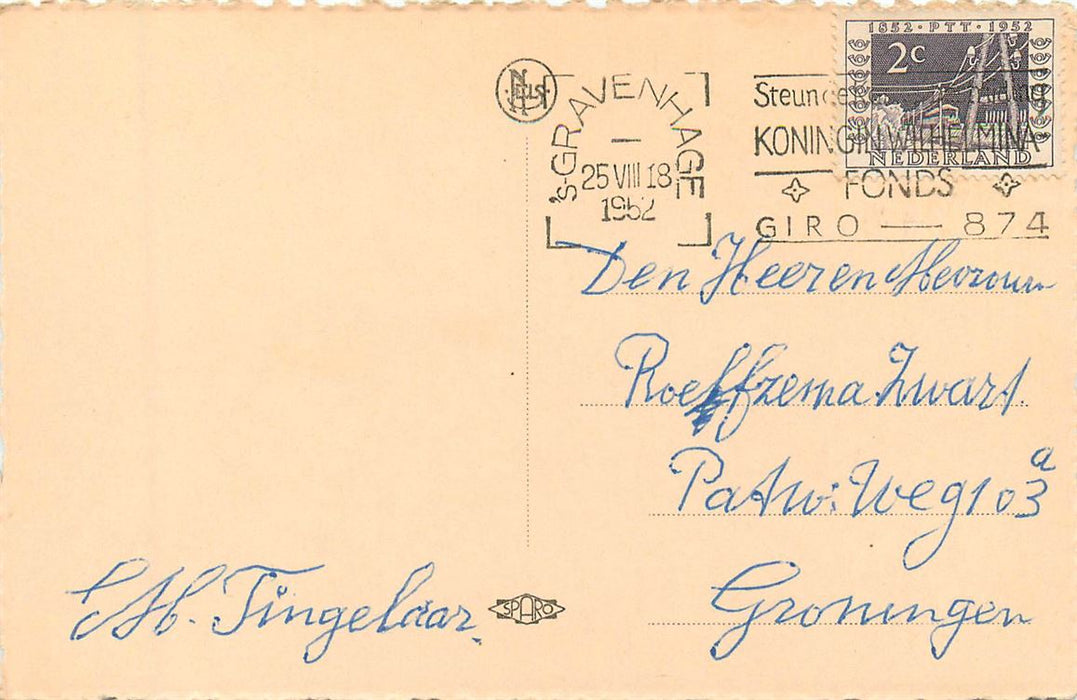 1852 · PTT · 1952
2c
NEDERLAND
NELS
's-GRAVENHAGE
25 VIII 18
1952
Steun
KONINGIN WILHELMINA
FONDS
GIRO — 874
Den Heer en Mevrouw
Roeffzema Zwart
Patw: Weg 103 a
Groningen
M. Tingelaar
SPARO